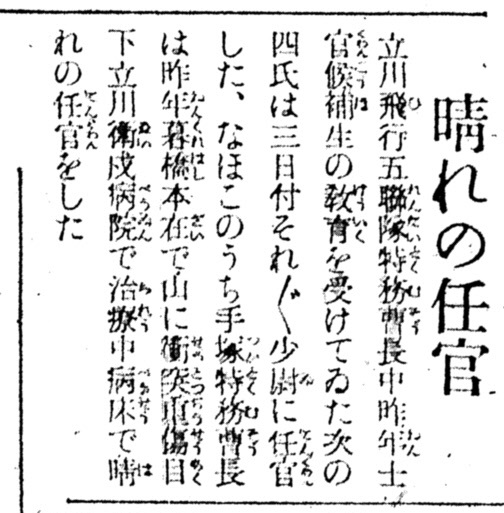 晴れの任官
立川飛行五聯隊特務曹長中昨年士
官候補生の敎育を受けてゐた次の
四氏は三日付それ〴〵少尉に任官
した、なほこのうち手塚特務曹長
は昨年暮橋本在で山に衝突重傷目
下立川衞戍病院で治療中病床で晴
れの任官をした